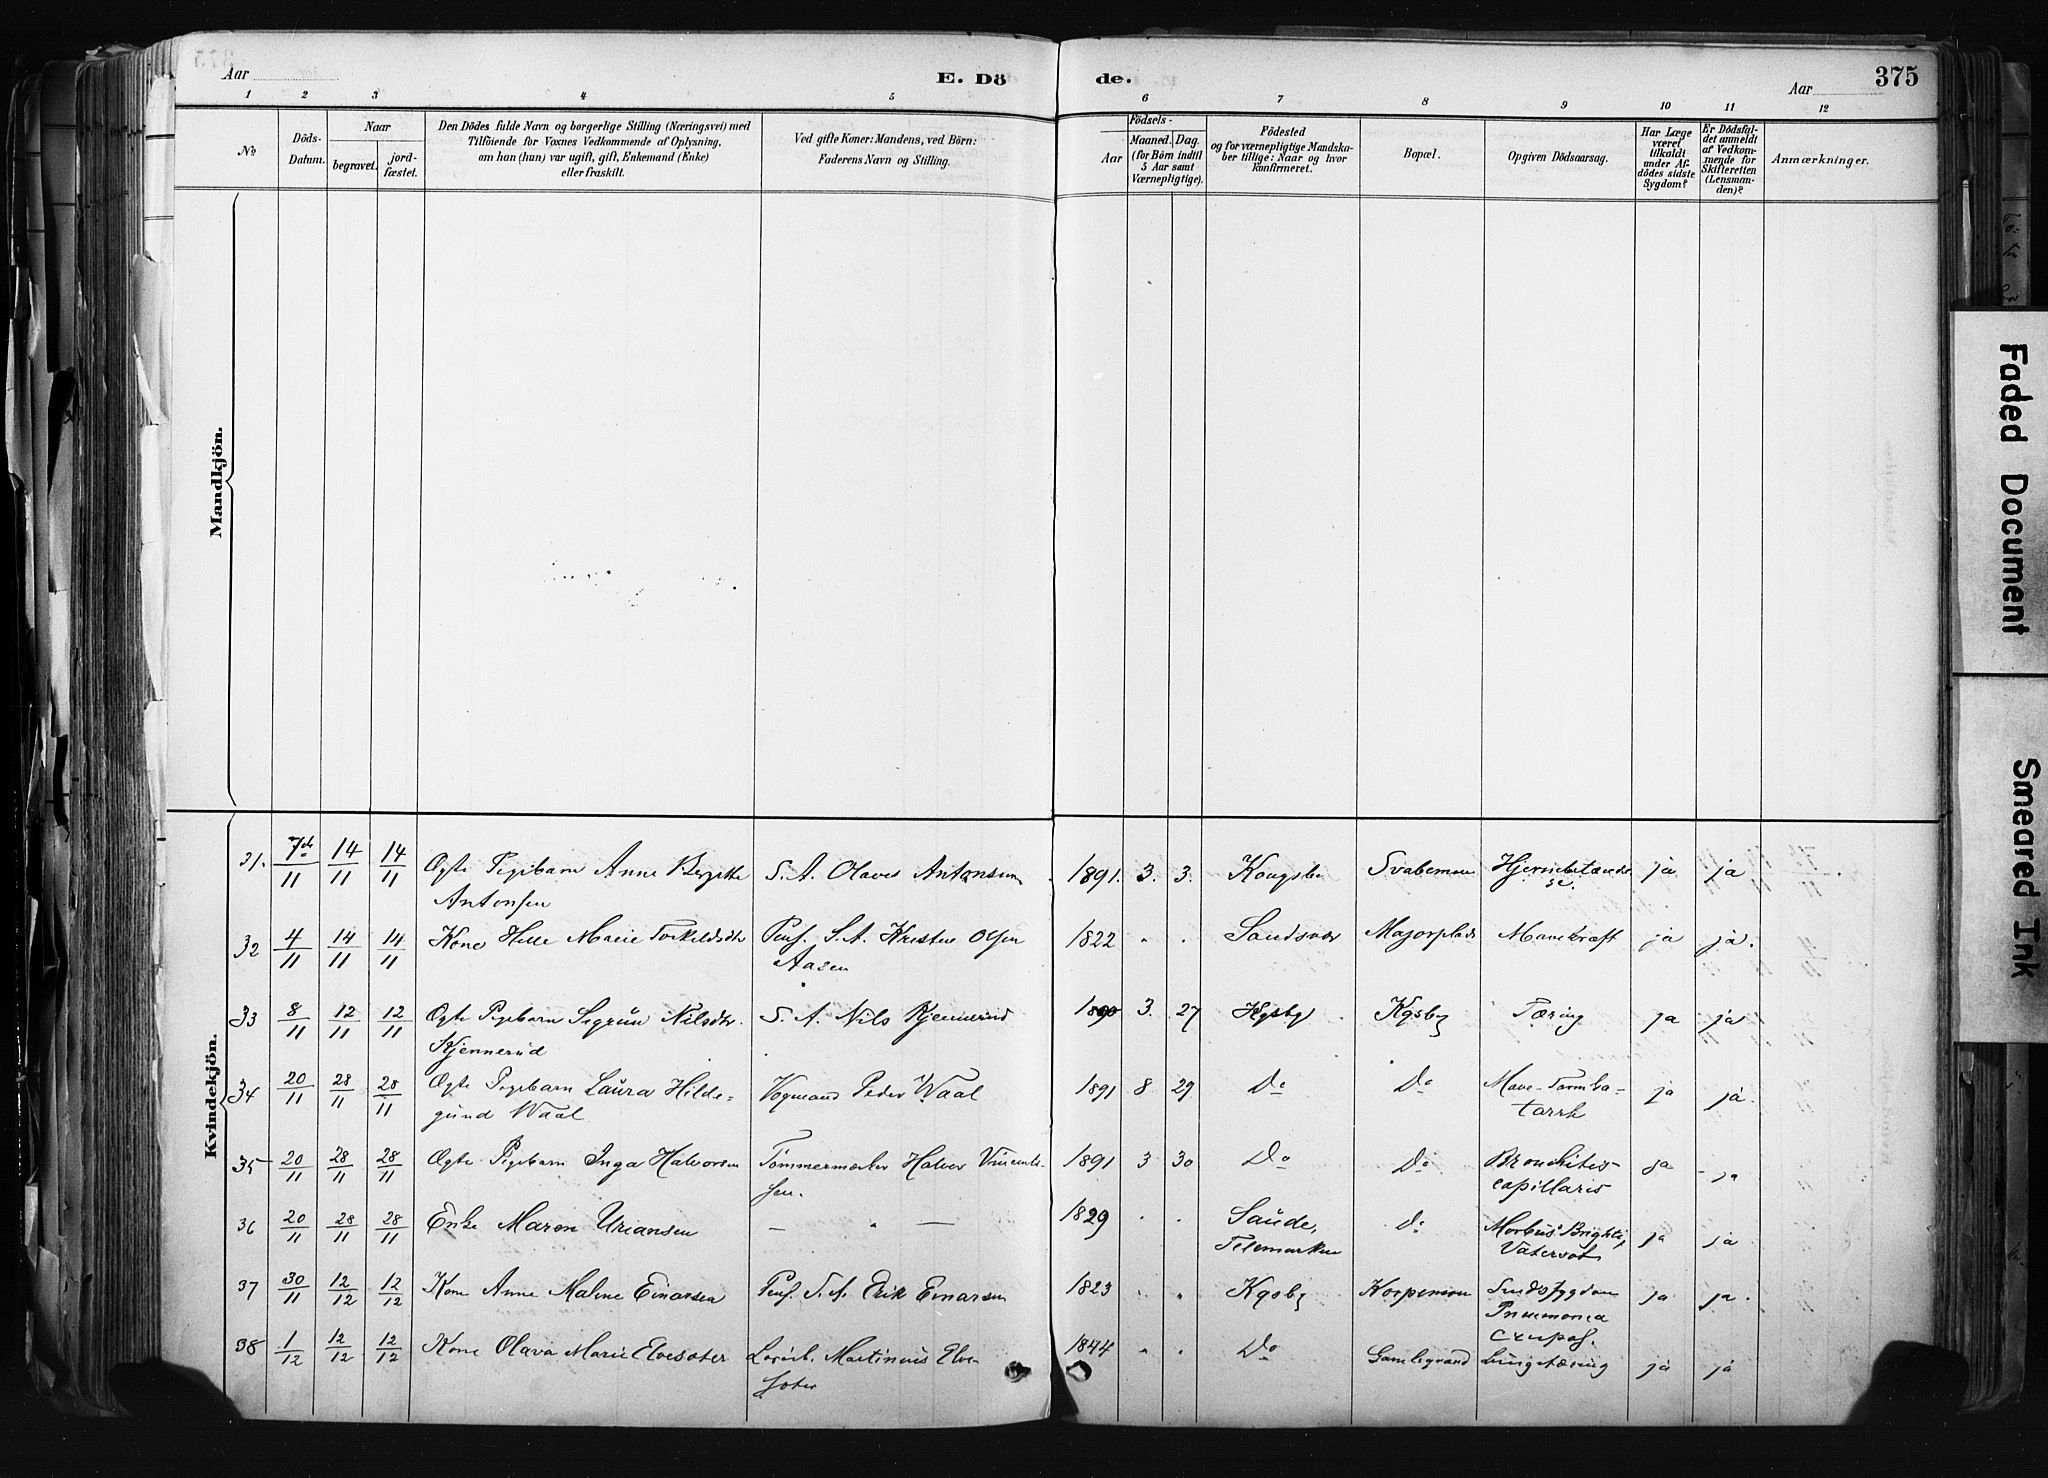 Aar
E. Dö
de.
Aar
375
1 2 3 4 5 6 7 8 9 10 11 12
No
Döds-
Datum.
Naar
begravet.
jord-
fæstet.
Den Dödes fulde Navn og borgerlige Stilling (Næringsvei) med
Tilföiende for Voxnes Vedkommende af Oplysning,
om han (hun) var ugift, gift, Enkemand (Enke)
eller fraskilt.
Ved gifte Koner: Mandens, ved Börn:
Faderens Navn og Stilling.
Födsels-
Aar
Maaned. Dag.
(for Börn indtil
5 Aar samt
Værnepligtige).
Födested
og for værnepligtige Mandska-
ber tillige: Naar og hvor
konfirmeret.
Bopæl.
Opgiven Dödsaarsag.
Har Læge
været
tilkaldt
under Af-
dödes sidste
Sygdom?
Er Dödsfal-
det anmeldt
af Vedkom-
mende for
Skifteretten
(Lensman-
den)?
Anmærkninger.
Mandkjön.
Kvindekjön.
31. 7de/11 14/11 14/11 Ægte Pigebarn Anne Bergitte S. A. Olaves Antonsen 1891. 3. 3. Kongsbe Svabemoen Hjernebetænde ja ja
Antonsen se
32 4/11 14/11 14/11 Kone Helle Marie Torkeldsdtr Pens. S. A. Kristen Olsen 1822 " " Sandsvær Majorplads Mavekræft ja ja.
Aasen
33 8/11 12/11 12/11 Ægte Pigebarn Sigrun Nilsdtr. S. A. Nils Kjennerud 1890 3. 27 Kgsby Kgsby Tæring ja ja
Kjennerud
34 20/11 28/11 28/11 Ægte Pigebarn Laura Hilde- Vognmand Peder Waal 1891 8 29 Do Do Mave-Tarmka- ja ja.
gund Waal tarrh
35 20/11 28/11 28/11 Ægte Pigebarn Inga Halvorsen Tømmermærker Halvor Vincents- 1891 3 30 Do Do Bronchitis ja ja
sen. capillaris
36 20/11 28/11 28/11 Enke Maren Uriansen — " — 1829 " " Saude, Do Morbus Brightii, ja ja
Telemarken Vatersot
37 30/11 12/12 12/12 Kone Anne Maline Einarsen Pens. S. A. Erik Einarsen 1823 " " Kgsby Korpemoen ja ja.
Pneumonia
crupos.
38 1/12 12/12 12/12 Kone Olava Marie Elvesæter Martinius Elve- 1844 " " Do Gamlegrand Lungetæring ja ja
sæter
Faded Document
Smeared Ink